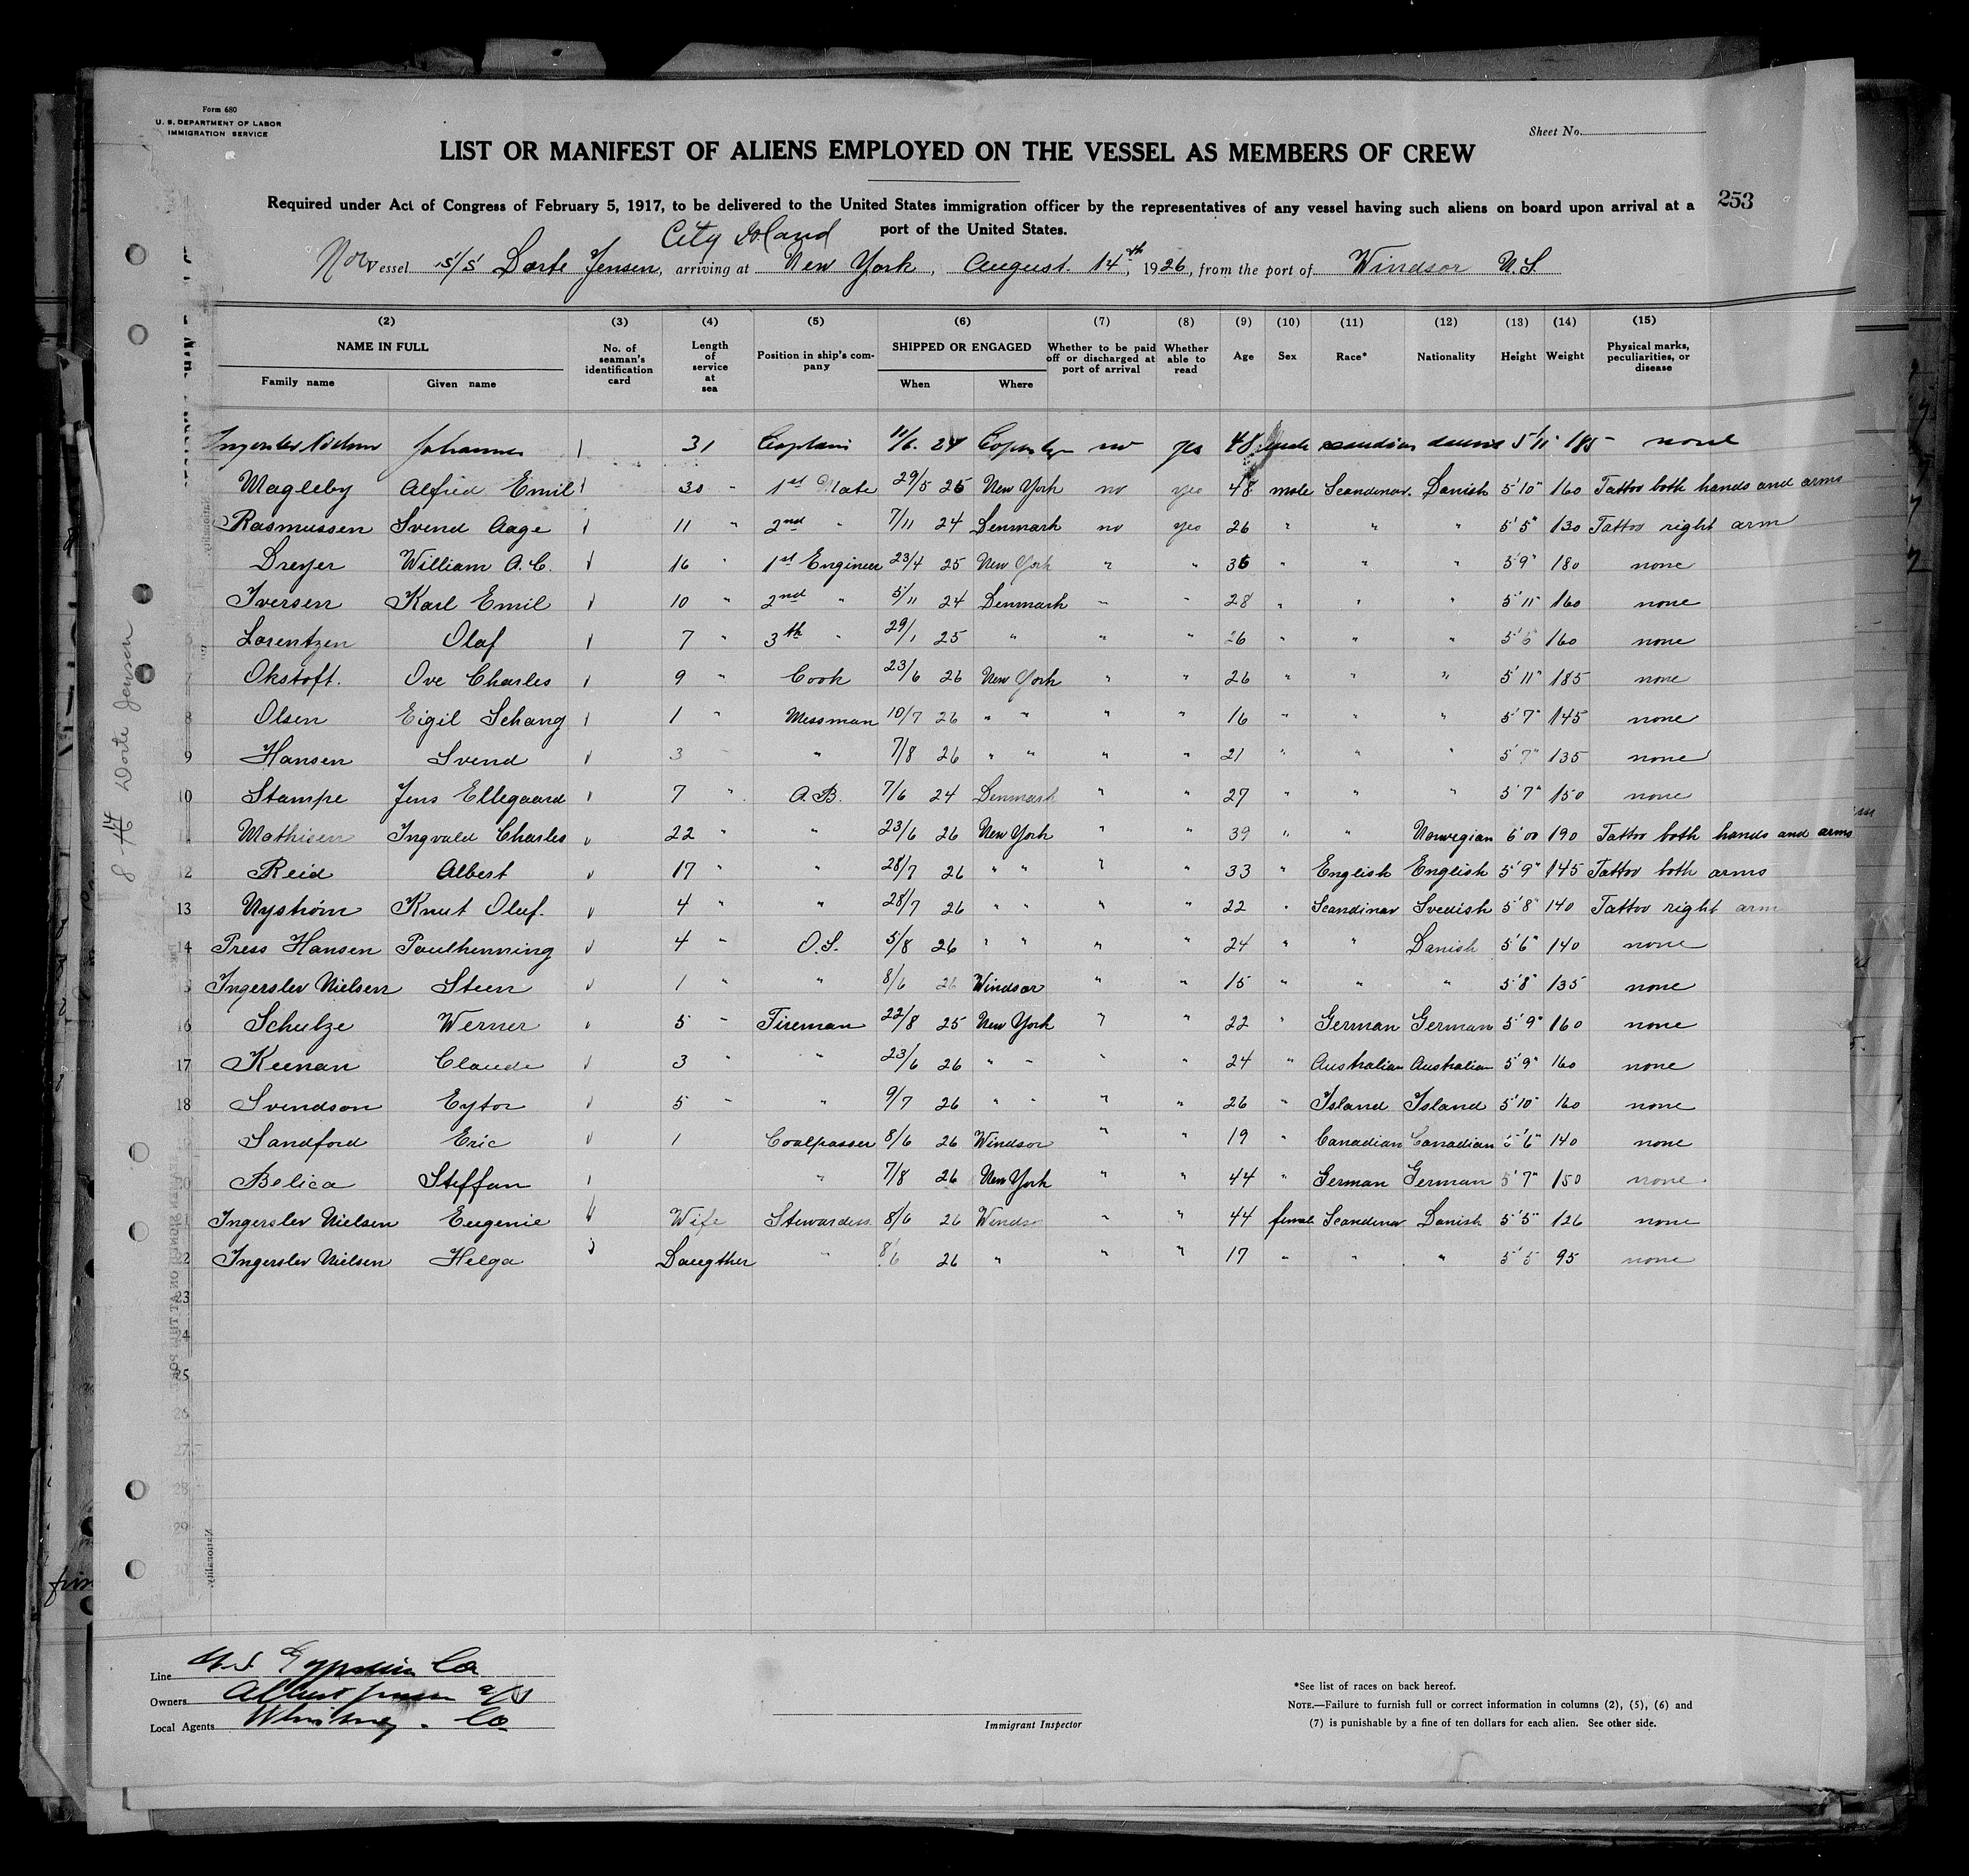 Form 680
U. S. DEPARTMENT OF LABOR
IMMIGRATION SERVICE
Sheet No.
LIST OR MANIFEST OF ALIENS EMPLOYED ON THE VESSEL AS MEMBERS OF CREW
253
Required under Act of Congress of February 5, 1917, to be delivered to the United States immigration officer by the representatives of any vessel having such aliens on board upon arrival at a
port of the United States.
City Island
Nor Vessel S/S Dorte Jensen, arriving at New York, August 14th, 1926, from the port of Windsor N.S.
(2) (3) (4) (5) (6) (7) (8) (9) (10) (11) (12) (13) (14) (15)
NAME IN FULL No. of seaman's identification card Length of service at sea Position in ship's company SHIPPED OR ENGAGED Whether to be paid off or discharged at port of arrival Whether able to read Age Sex Race* Nationality Height Weight Physical marks, peculiarities, or disease
Family name Given name When Where
Ingerslev Nielsen Johannes 31 Captain 11/6 24 no yes 48 male 5'11" 185 none
Magleby Alfred Emil 30 " 1st Mate 29/5 25 New York no yes 48 male Scandinav. Danish 5'10" 160 Tattoo both hands and arms
Rasmussen Svend Aage 11 " 2nd " 7/11 24 Denmark no yes 26 " " " 5'5" 130 Tattoo right arm
Dreyer William A.C. 16 " 1st Engineer 23/4 25 New York " " 36 " " " 5'9" 180 none
Iversen Karl Emil 10 " 2nd " 5/11 24 Denmark " " 28 " " " 5'11" 160 none
Lorentzen Olaf 7 " 3th " 29/1 25 " " " 26 " " " 5'6" 160 none
7 Okstoft. Ove Charles 9 " Cook 23/6 26 New York " " 26 " " " 5'11" 185 none
8 Olsen Eigil Schang 1 " Messman 10/7 26 " " " " 16 " " " 5'7" 145 none
9 Hansen Svend 3 " 7/8 26 " " " " 21 " 5'7" 135 none
10 Stampe Jens Ellegaard 7 " A.B. 7/6 24 Denmark " " 27 " " " 5'7" 150 none
Mathisen Ingvald Charles 22 " " 23/6 26 New York " " 39 " " Norwegian 6'00 190 Tattoo both hands and arms
12 Reid Albert 17 " " 28/7 26 " " " " 33 " English English 5'9" 145 Tattoo both arms
13 Nystrøm Knut Oluf. 4 " " 28/7 26 " " " " 22 " Scandinav Svedish 5'8" 140 Tattoo right arm
14 Press Hansen Paulhenning 4 " O.S. 5/8 26 " " " " 24 " " Danish 5'6" 140 none
15 Ingerslev Nielsen Steen 1 " " 8/6 26 Windsor " " 15 " " " 5'8" 135 none
16 Schulze Werner 5 " Fireman 22/8 25 New York " " 22 " German German 5'9" 160 none
17 Keenan Claude 3 " " 23/6 26 " " " " 24 " Australian Australian 5'9" 160 none
18 Svendson Eytor 5 " " 9/7 26 " " " " 26 " Island Island 5'10" 160 none
Sandford Eric 1 Coalpasser 8/6 26 Windsor " " 19 " Canadian Canadian 5'6" 140 none
20 Belica Steffan " 7/8 26 New York " " 44 " German German 5'7" 150 none
Ingerslev Nielsen Eugenie Wife Stewardess 8/6 26 Windsor " " 44 female Scandinav Danish 5'5" 126 none
22 Ingerslev Nielsen Helga Daugther " 8/6 26 " " " 17 " " " 5'5 95 none
23
24
25
26
27
28
29
30
8/14 Dorte Jensen
Line
Owners Albert Jensen A/S
Local Agents Whitney Co
Immigrant Inspector
*See list of races on back hereof.
NOTE.—Failure to furnish full or correct information in columns (2), (5), (6) and
(7) is punishable by a fine of ten dollars for each alien. See other side.